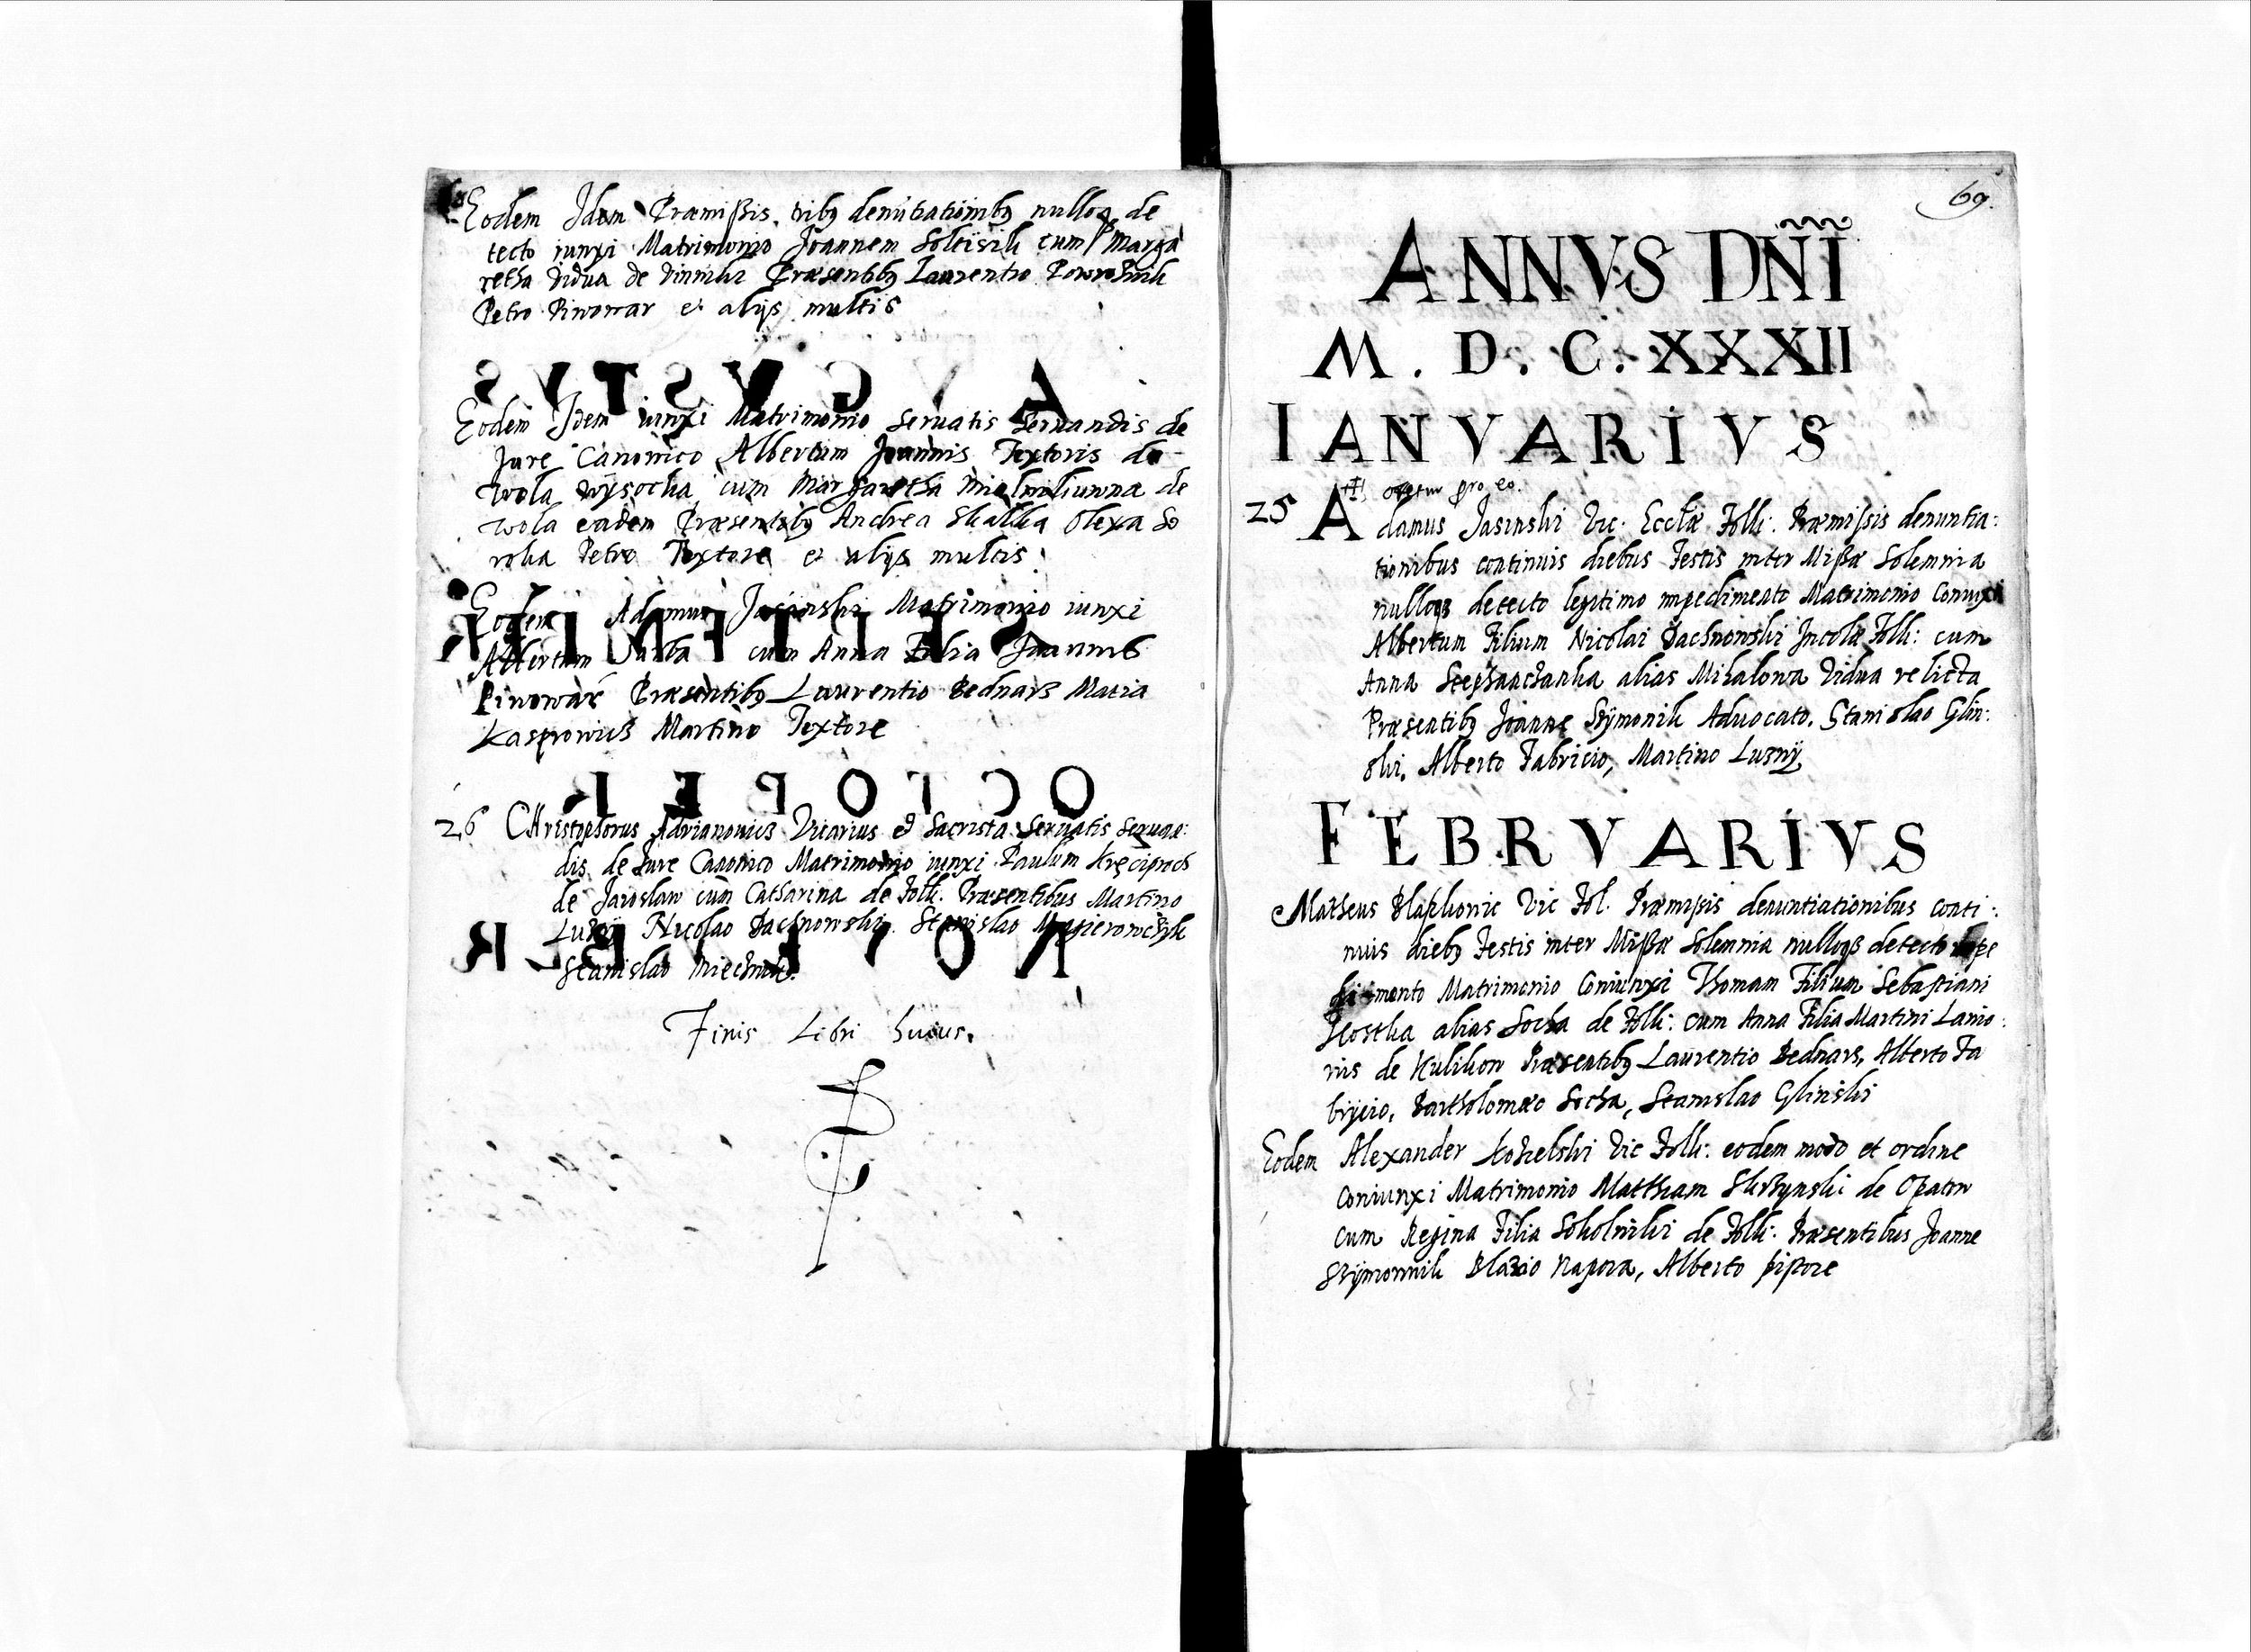 Eodem Idem Præmißis tribq denũtiationibq nulloq de
tecto iunxi Matrimonio Joannem cum Marga
retha Vidua de Præsentibq Laurentio
Petro Piwowar et alijs multis
AVGVSTVS
Eodem Idem iunxi Matrimonio seruatis seruandis de
Jure Canonico Albertum Joannis Textoris de
Wola wysocka cum Margaretha de
Wola eadem Præsentibq Andrea Skalka Olexa So
roka Petro Textore et alijs multis
Eodem Adamus Jasinski Matrimonio iunxi
Albertum cum Anna Filia Joannis
Piwowar Præsentibq Laurentio Bednarz Macia
Kasprowicz Martino Textore
26 Christophorus Adrianowicz Vicarius et Sacrista Seruatis seruan:
dis de Jure Canonico Matrimonio iunxi Paulum
de Jaroslaw cum Catharina de Folk. Præsentibus Martino
Luzny Nicolao Dachnowski. Stanislao
Stanislao Miechnik.
Finis Libri huius.
69.
ANNVS DÑI
M. D. C. XXXII
IANVARIVS
oretur pro eo.
25 Adamus Jasinski Vic. Ecclæ Folk. Præmissis denuntia:
tionibus continuis diebus Festis inter Mißæ Solemnia
nulloqз detecto legitimo impedimento Matrimonio Coniunxi
Albertum Filium Nicolai Dachnowski Incolæ Folk: cum
Anna alias Mihalowa Vidua relicta
Præsentibq Joanne Szÿmonik Aduocato. Stanislao Glin:
ski. Alberto Fabricio, Martino Luznÿ.
FEBRVARIVS
Matheus Vic Fol. Præmissis denuntiationibus conti:
nuis diebq Festis inter Mißæ Solemnia nulloqз detecto impe
dimento Matrimonio Coniunxi Thomam Filium Sebastiani
Kostka alias Socha de Folk: cum Anna Filia Martini Lanio:
nis de Kulikow Præsentibq Laurentio Bednarz, Alberto Fa
bricio, Bartholomæo Socha, Stanislao Glinski
Eodem Alexander Kokelski Vic Folk: eodem modo et ordine
coniunxi Matrimonio Matthæum de Opatow
cum Regina Filia Sokolnicki de Folk: Præsentibus Joanne
Szÿmonnik Blasio Napora, Alberto pistore